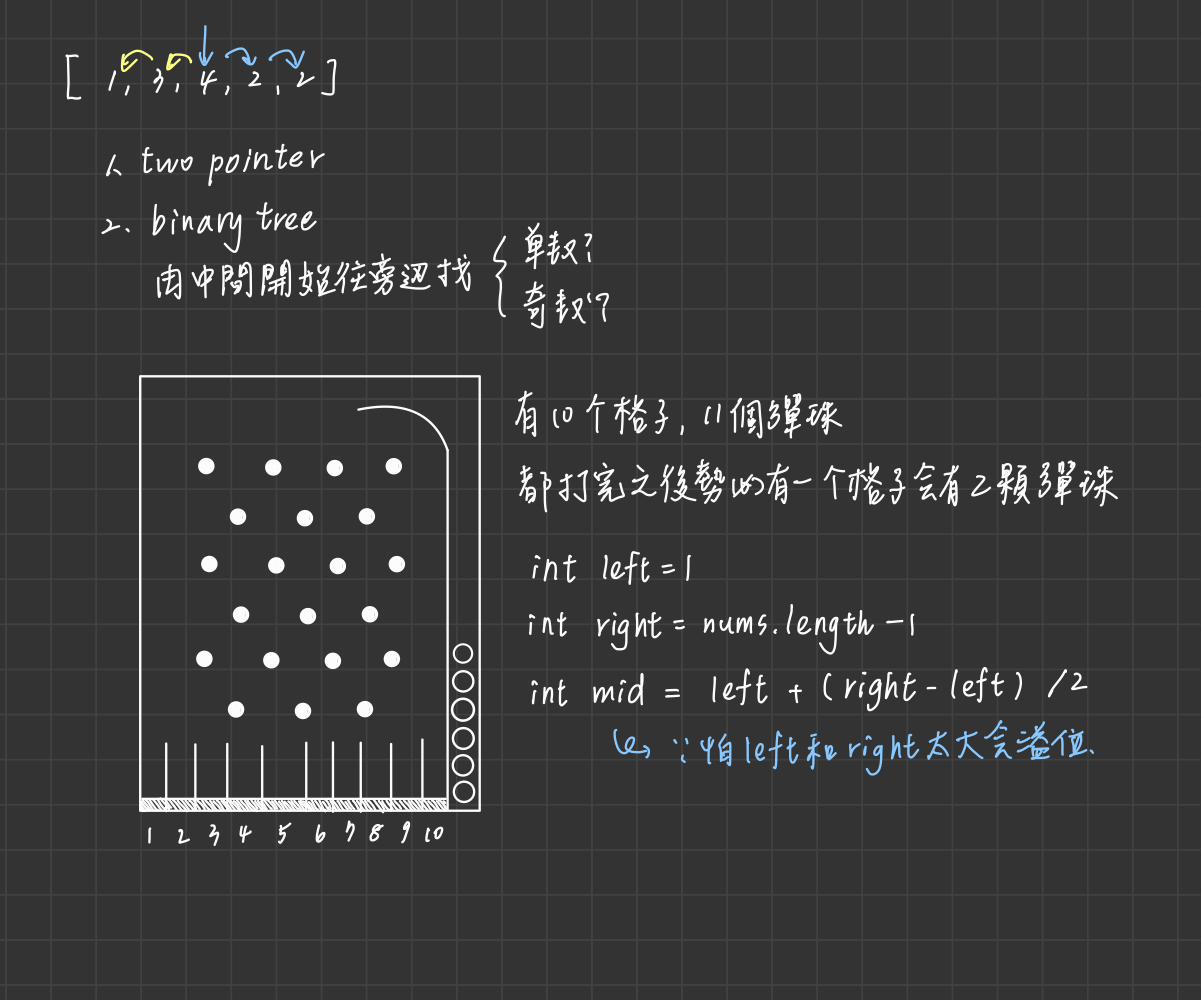 [ 1, 3, 4, 2, 2 ]
1. two pointer
2. binary tree
由中間開始往旁边找 { 單数?
奇数?
有10个格子, 11個彈球
都打完之後勢必有一个格子会有2顆彈球
int left = 1
int right = nums.length - 1
int mid = left + (right - left) / 2
↳ ∵怕left和right太大会溢位.
1 2 3 4 5 6 7 8 9 10